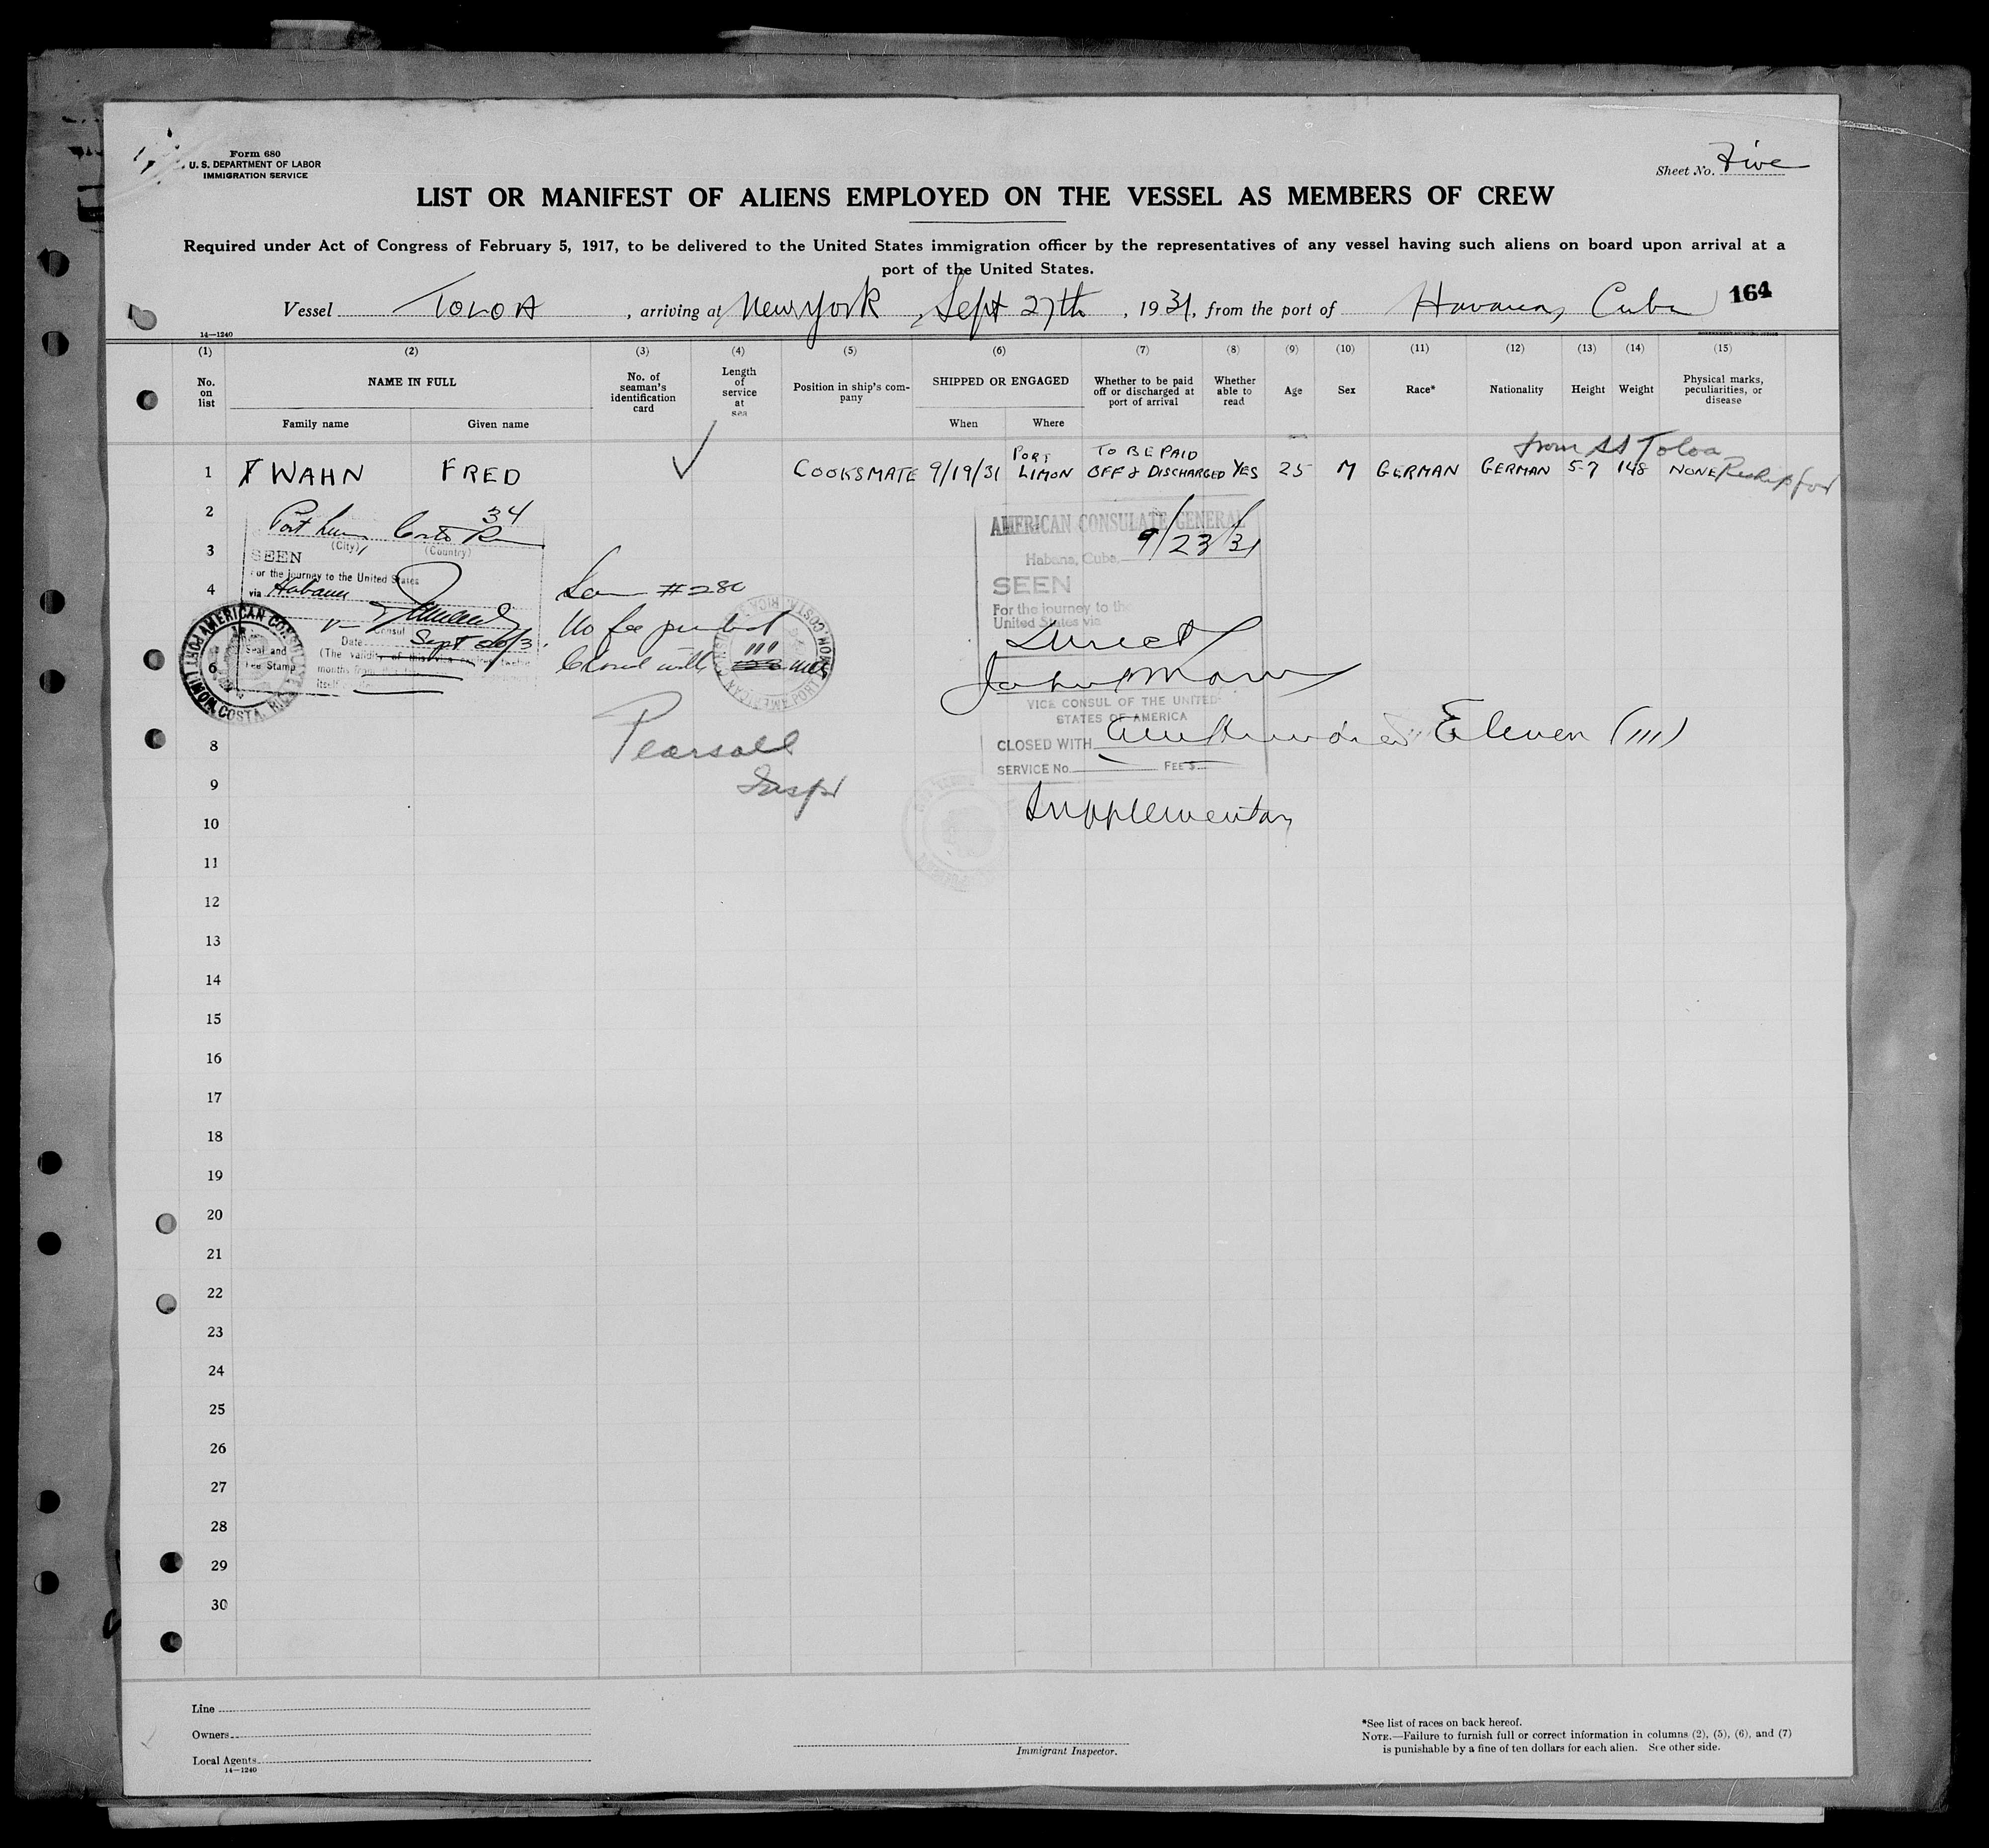 Form 680
U. S. DEPARTMENT OF LABOR
IMMIGRATION SERVICE
Sheet No. Five
LIST OR MANIFEST OF ALIENS EMPLOYED ON THE VESSEL AS MEMBERS OF CREW
Required under Act of Congress of February 5, 1917, to be delivered to the United States immigration officer by the representatives of any vessel having such aliens on board upon arrival at a
port of the United States.
Vessel TOLOA , arriving at New York , Sept 27th , 1931, from the port of Havana, Cuba 164
14—1240
(1) (2) (3) (4) (5) (6) (7) (8) (9) (10) (11) (12) (13) (14) (15)
No. on list
NAME IN FULL
Family name Given name
No. of seaman's identification card
Length of service at sea
Position in ship's company
SHIPPED OR ENGAGED
When Where
Whether to be paid off or discharged at port of arrival
Whether able to read
Age
Sex
Race*
Nationality
Height
Weight
Physical marks, peculiarities, or disease
from SS Toloa
1 X WAHN FRED COOKSMATE 9/19/31 PORT LIMON TO BE PAID OFF & DISCHARGED YES 25 M GERMAN GERMAN 5-7 148 NONE Reship for
2
34
3
(City) (Country)
SEEN
For the journey to the United States
4
via Habana
Consul
Date Sept 20/31
(The validity of this visa
months from
Seal and
Fee Stamp
AMERICAN CONSULATE
PORT LIMON, COSTA RICA
#280
No fee
Closed with 111
PORT LIMON, COSTA RICA
AMERICAN CONSULATE GENERAL
Habana, Cuba. 9/23/31
SEEN
For the journey to the
United States via
Direct
John
VICE CONSUL OF THE UNITED
STATES OF AMERICA
CLOSED WITH One Hundred Eleven (111)
SERVICE No. FEE $
Supplementary
Pearsall
Insp
8
9
10
11
12
13
14
15
16
17
18
19
20
21
22
23
24
25
26
27
28
29
30
Line
Owners
Local Agents
14—1240
Immigrant Inspector.
*See list of races on back hereof.
NOTE.—Failure to furnish full or correct information in columns (2), (5), (6), and (7)
is punishable by a fine of ten dollars for each alien. See other side.